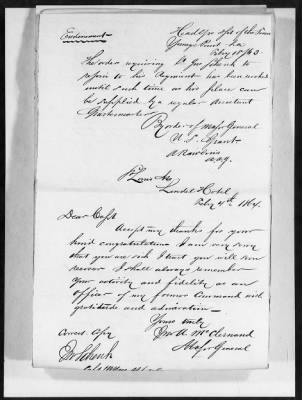 Endorsement
Head Qrs Dpt of the Tenn
Youngs Point La
Feby 15/63
The order requiring Lt Geo Schenk to
rejoin to his Regiment has been revoked
until such time as his place can
be supplied by a regular
Quartermaster
By order of Major General
U. S. Grant
Rawlins
A.A.G.
St Louis Mo
Lindel Hotel
Feby 4th 1864.
Dear Capt
Accept my thanks for your
kind congratulations I am very sorry
that you are sick I trust you will soon
recover I shall always remember
your activity and fidelity as an
officer of my former Command with
gratitude and admiration—
Yours truly
Jno A. McClernand
Major General
Correct Copy
Schenk